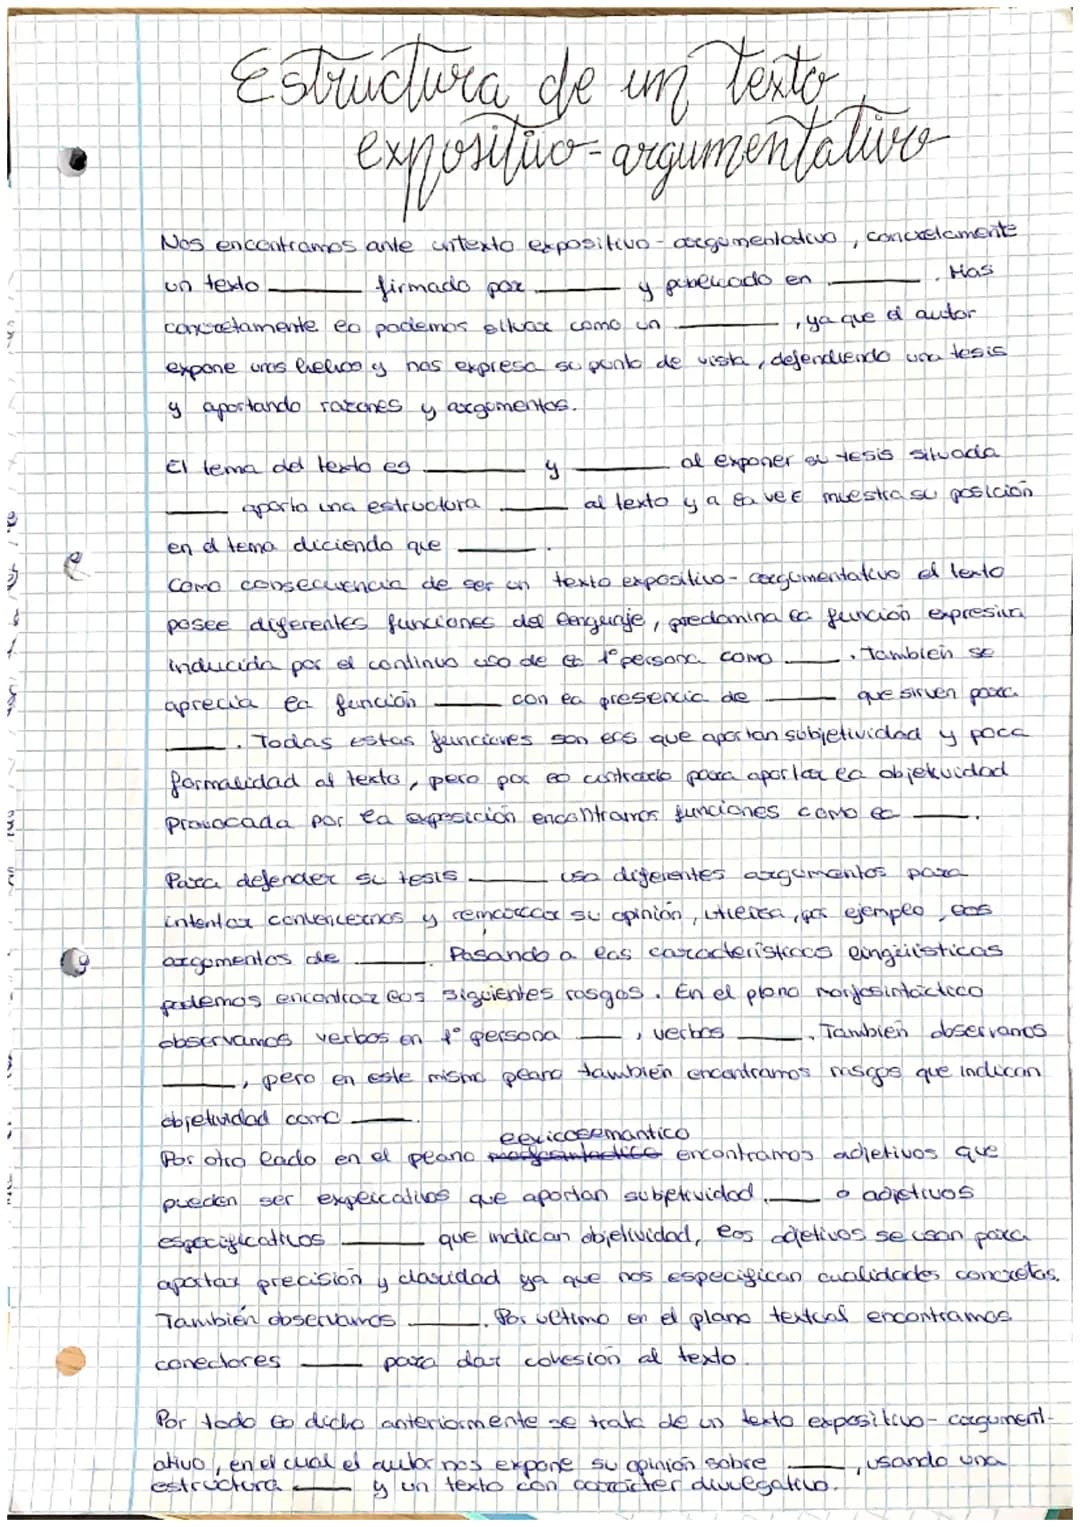 Estructura de un texto
expositivo-argumentativo
Nos encontramos ante un texto expositivo-argumentativo, concretamente
un texto ____ firmado por ____ y publicado en ____. Mas
concretamente lo podemos situar como un ____, ya que el autor
expone unos hechos y nos expresa su punto de vista, defendiendo una tesis
y aportando razones y argumentos.
El tema del texto es ____ y ____ al exponer su tesis situada
____ aporta una estructura ____ al texto y a la vez muestra su posición
en el tema diciendo que ____.
Como consecuencia de ser un texto expositivo-argumentativo el texto
posee diferentes funciones del lenguaje, predomina la función expresiva
inducida por el continuo uso de la 1ª persona como ____. También se
aprecia la función ____ con la presencia de ____ que sirven para
____. Todas estas funciones son las que aportan subjetividad y poca
formalidad al texto, pero por lo contrario para aportar la objetividad
provocada por la exposición encontramos funciones como la ____.
Para defender su tesis ____ usa diferentes argumentos para
intentar convencernos y remarcar su opinión, utiliza, por ejemplo, los
argumentos de ____. Pasando a las características lingüísticas
podemos encontrar los siguientes rasgos. En el plano morfosintáctico
observamos verbos en 1ª persona ____, verbos ____. También observamos
____, pero en este mismo plano también encontramos rasgos que indican
objetividad como ____.
lexicosemantico
Por otro lado en el plano morfosintactico encontramos adjetivos que
pueden ser explicativos que aportan subjetividad ____ o adjetivos
especificativos ____ que indican objetividad, los adjetivos se usan para
aportar precisión y claridad ya que nos especifican cualidades concretas.
También observamos ____. Por ultimo en el plano textual encontramos
conectores ____ para dar cohesión al texto.
Por todo lo dicho anteriormente se trata de un texto expositivo-argument-
ativo, en el cual el autor nos expone su opinión sobre ____, usando una
estructura ____ y un texto con carácter divulgativo.